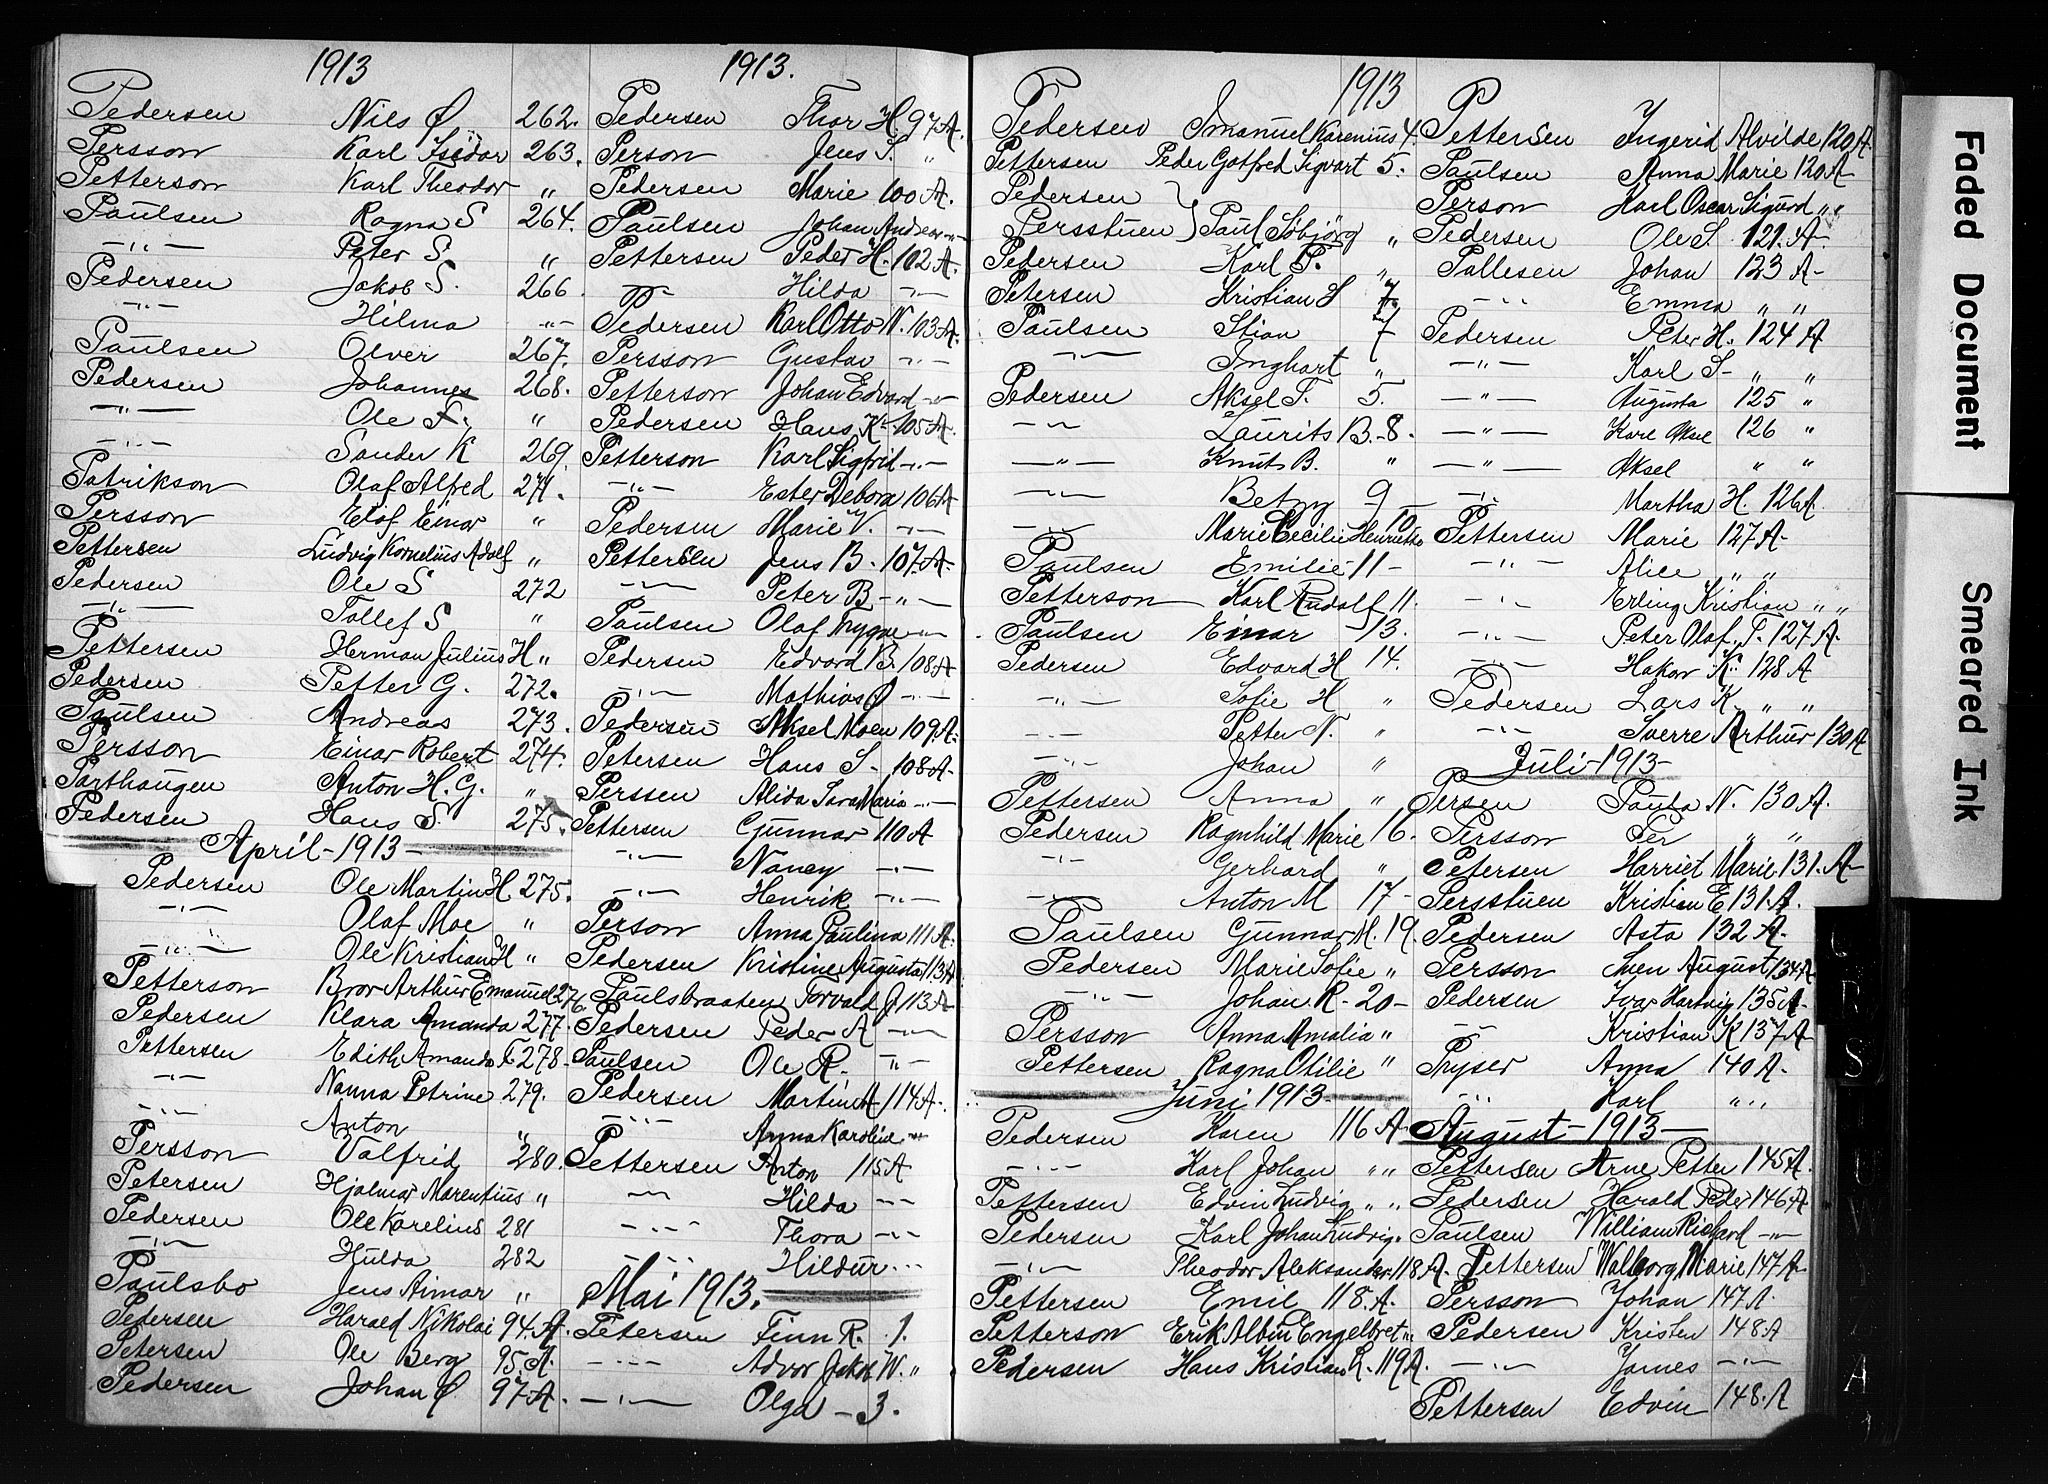 1913
Pedersen Nils Ø 262.
Persson Karl Isidor 263.
Petterson Karl Theodor "
Paulsen Ragna S 264.
—"— Peter S. "
Pedersen Jakob S. 266
—"— Hilma —"—
Paulsen Olver 267.
Pedersen Johannes 268.
—"— Ole F. "
—"— Sander K 269.
Patrikson Olaf Alfred 271.
Persson Elof Einar "
Pettersen Ludvig Kornelius Adolf "
Pedersen Ole S 272
—"— Tollef S "
Pettersen Herman Julius H "
Pedersen Petter G. 272.
Paulsen Andreas 273.
Persson Einar Robert 274.
Parthaugen Anton H. G. "
Pedersen Hans S. 275.
April - 1913 -
Pedersen Ole Martin H. 275.
—"— Olaf Moe "
—"— Ole Kristian H "
Petterson Bror Arthur Emanuel 276
Pedersen Klara Amanda 277.
Pettersen Edith Amanda T 278.
—"— Nanna Petrine 279.
—"— Anton "
Persson Valfrid 280.
Petersen Hjalmar Marentius "
Pedersen Ole Karelius 281
—"— Hulda 282
Paulsbo Jens Aimar "
Pedersen Harald Nikolai 94.A.
Petersen Ole Berg 95.A.
Pedersen Johan Ø 97.A.
1913.
Pedersen Thor H. 97A.
Person Jens S. "
Pedersen Marie 100 A.
Paulsen Johan Andreas —"—
Pettersen Peder H. 102 A.
—"— Hilda —"—
Pedersen Karl Otto N. 103 A.
Persson Gustav —"—
Petterson Johan Edvard —"—
Pedersen Hans K. 105 A.
Petterson Karl Sigfrid —"—
—"— Ester Debora 106 A
Pedersen Marie V. —"—
Pettersen Jens B. 107.A.
—"— Peter B —"—
Paulsen Olaf Trygve —"—
Pedersen Edvard B. 108 A
—"— Mathias Ø —"—
Pedersen Aksel Moen 109.A.
Petersen Hans S. 108 A.
Perssen Alida Sara Maria —"—
Pettersen Gunnar 110 A
—"— Nancy —"—
—"— Henrik —"—
Person Anna Paulina 111 A.
Pedersen Kristine Augusta 113 A
Paulsbraaten Torvald J. 113 A.
Pedersen Peder A —"—
Paulsen Ole R. —"—
Pedersen Martin A 114 A.
—"— Anna Karoline —"—
Pettersen Anton 115 A
—"— Hilda —"—
—"— Thora —"—
—"— Hildur —"—
Mai 1913.
Petersen Finn R. 1.
—"— Advor Jakob W. "
—"— Olga - 3.
1913
Pedersen Imanuel Karenius 4.
Pettersen Peder Gotfred Sigvart 5.
Pedersen
Persstuen } Paul Søbjørg "
Pedersen Karl T. "
Petersen Kristian S 7.
Paulsen Stian 7
—"— Inghart "
Pedersen Aksel T. 5.
—"— Laurits B. - 8.
—"— Knut B. "
—"— Betzy 9 -
—"— Marie Cecilie Henriette 10
Paulsen Emilie 11 -
Petterson Karl Rudolf 11.
Paulsen Einar 13.
Pedersen Edvard H 14.
—"— Sofie H "
—"— Petter N. "
—"— Johan "
Pettersen Anna "
Pedersen Ragnhild Marie 16.
—"— Gerhard "
—"— Anton M 17 -
Paulsen Gunnar M. 19.
Pedersen Marie Sofie "
—"— Johan R. 20 -
Persson Anna Amalia "
Pettersen Ragna Otilie "
Juni 1913 -
Pedersen Karen 116 A
—"— Karl Johan " "
Pettersen Edvin Ludvig " "
Pedersen Karl Johan Ludvig "
—"— Theodor Aleksander 118 A.
Pettersen Emil 118.A.
Petterson Erik Albin Engelbret "
Pedersen Hans Kristian R. 119 A.
Pettersen Ingerid Alvilde 120 A
Paulsen Anna Marie 120 A
Person Karl Oscar Sigurd " "
Pedersen Ole S. 121.A.
Pallesen Johan 123 A
—"— Emma " "
Pedersen Peter H. 124 A
—"— Karl S. " "
—"— Augusta 125 "
—"— Karl Aksel 126 "
—"— Aksel " "
—"— Martha H. 126 A.
Pettersen Marie 127 A.
—"— Alice " "
—"— Erling Kristian " "
—"— Peter Olaf T. 127 A.
—"— Hakon K. 128 A
Pedersen Lars K. " "
—"— Sverre Arthur 130 A
Juli - 1913 -
Persen Paula N. 130 A.
Persson Per " "
Petersen Harriet Marie 131. A
Persstuen Kristian E 131 A.
Pedersen Asta 132 A.
Persson Sven August 134 A
Pedersen Ivar Hartvig 135 A
—"— Kristian K 137 A
Pryser Anna 140 A.
—"— Karl " "
August - 1913 -
Pettersen Arne Petter 145 A.
Pedersen Harald Peder 146 A
Paulsen William Richard —"—
Pettersen Walborg Marie 147 A
Persson Johan 147 A.
Pedersen Kristen 148.A
—"— James —"—
Pettersen Edvin 148.A
Faded Document
Smeared Ink